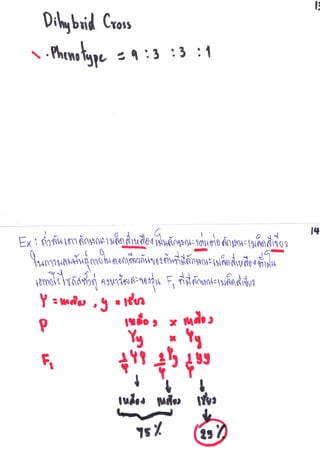 13
Dihybrid Cross
. Phenotype = 9 : 3 : 3 : 1
14
Ex : ถ้าต้นถั่วลักษณะเมล็ดสีเหลืองเป็นลักษณะเด่นต่อลักษณะเมล็ดสีเขียว
ในการผสมพันธุ์ภายในดอกเดียวกันของต้นที่มีลักษณะเมล็ดสีเหลืองที่เป็น
เฮเทอโรไซกัส F₁ ที่มีลักษณะเมล็ดสีเขียว
Y = เหลือง , y = เขียว
P เหลือง x เหลือง
Yy x Yy
F₁ 1/4 YY 2/4 Yy 1/4 yy
เหลือง เหลือง เขียว
75 % 25 %